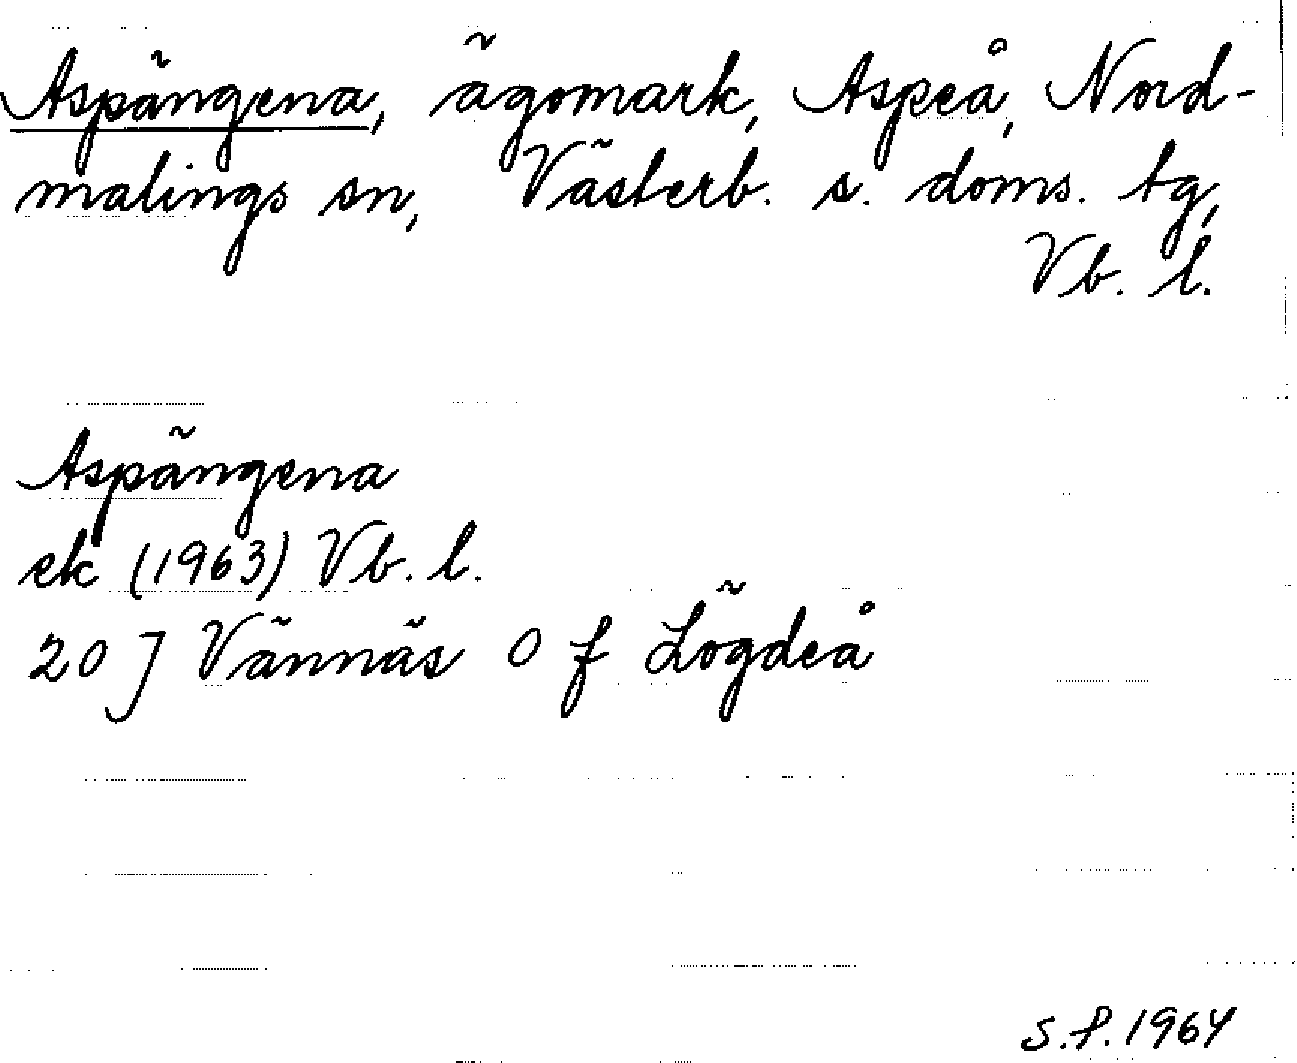 Aspängena, ägomark, Aspeå, Nord-
malings sn, Västerb. s. doms. tg,
Vb. l.
Aspängena
ek (1963) Vb. l.
20 J Vännäs O f Lögdeå
S.P. 1964